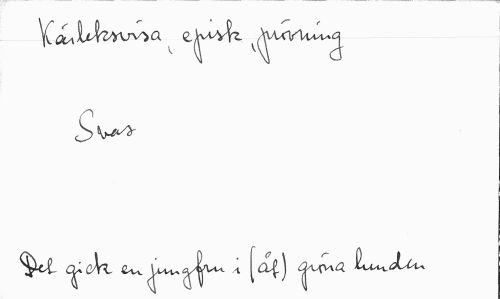 Kärleksvisa, episk, prövning
Svar
Det gick en jungfru i (åt) gröna lunden